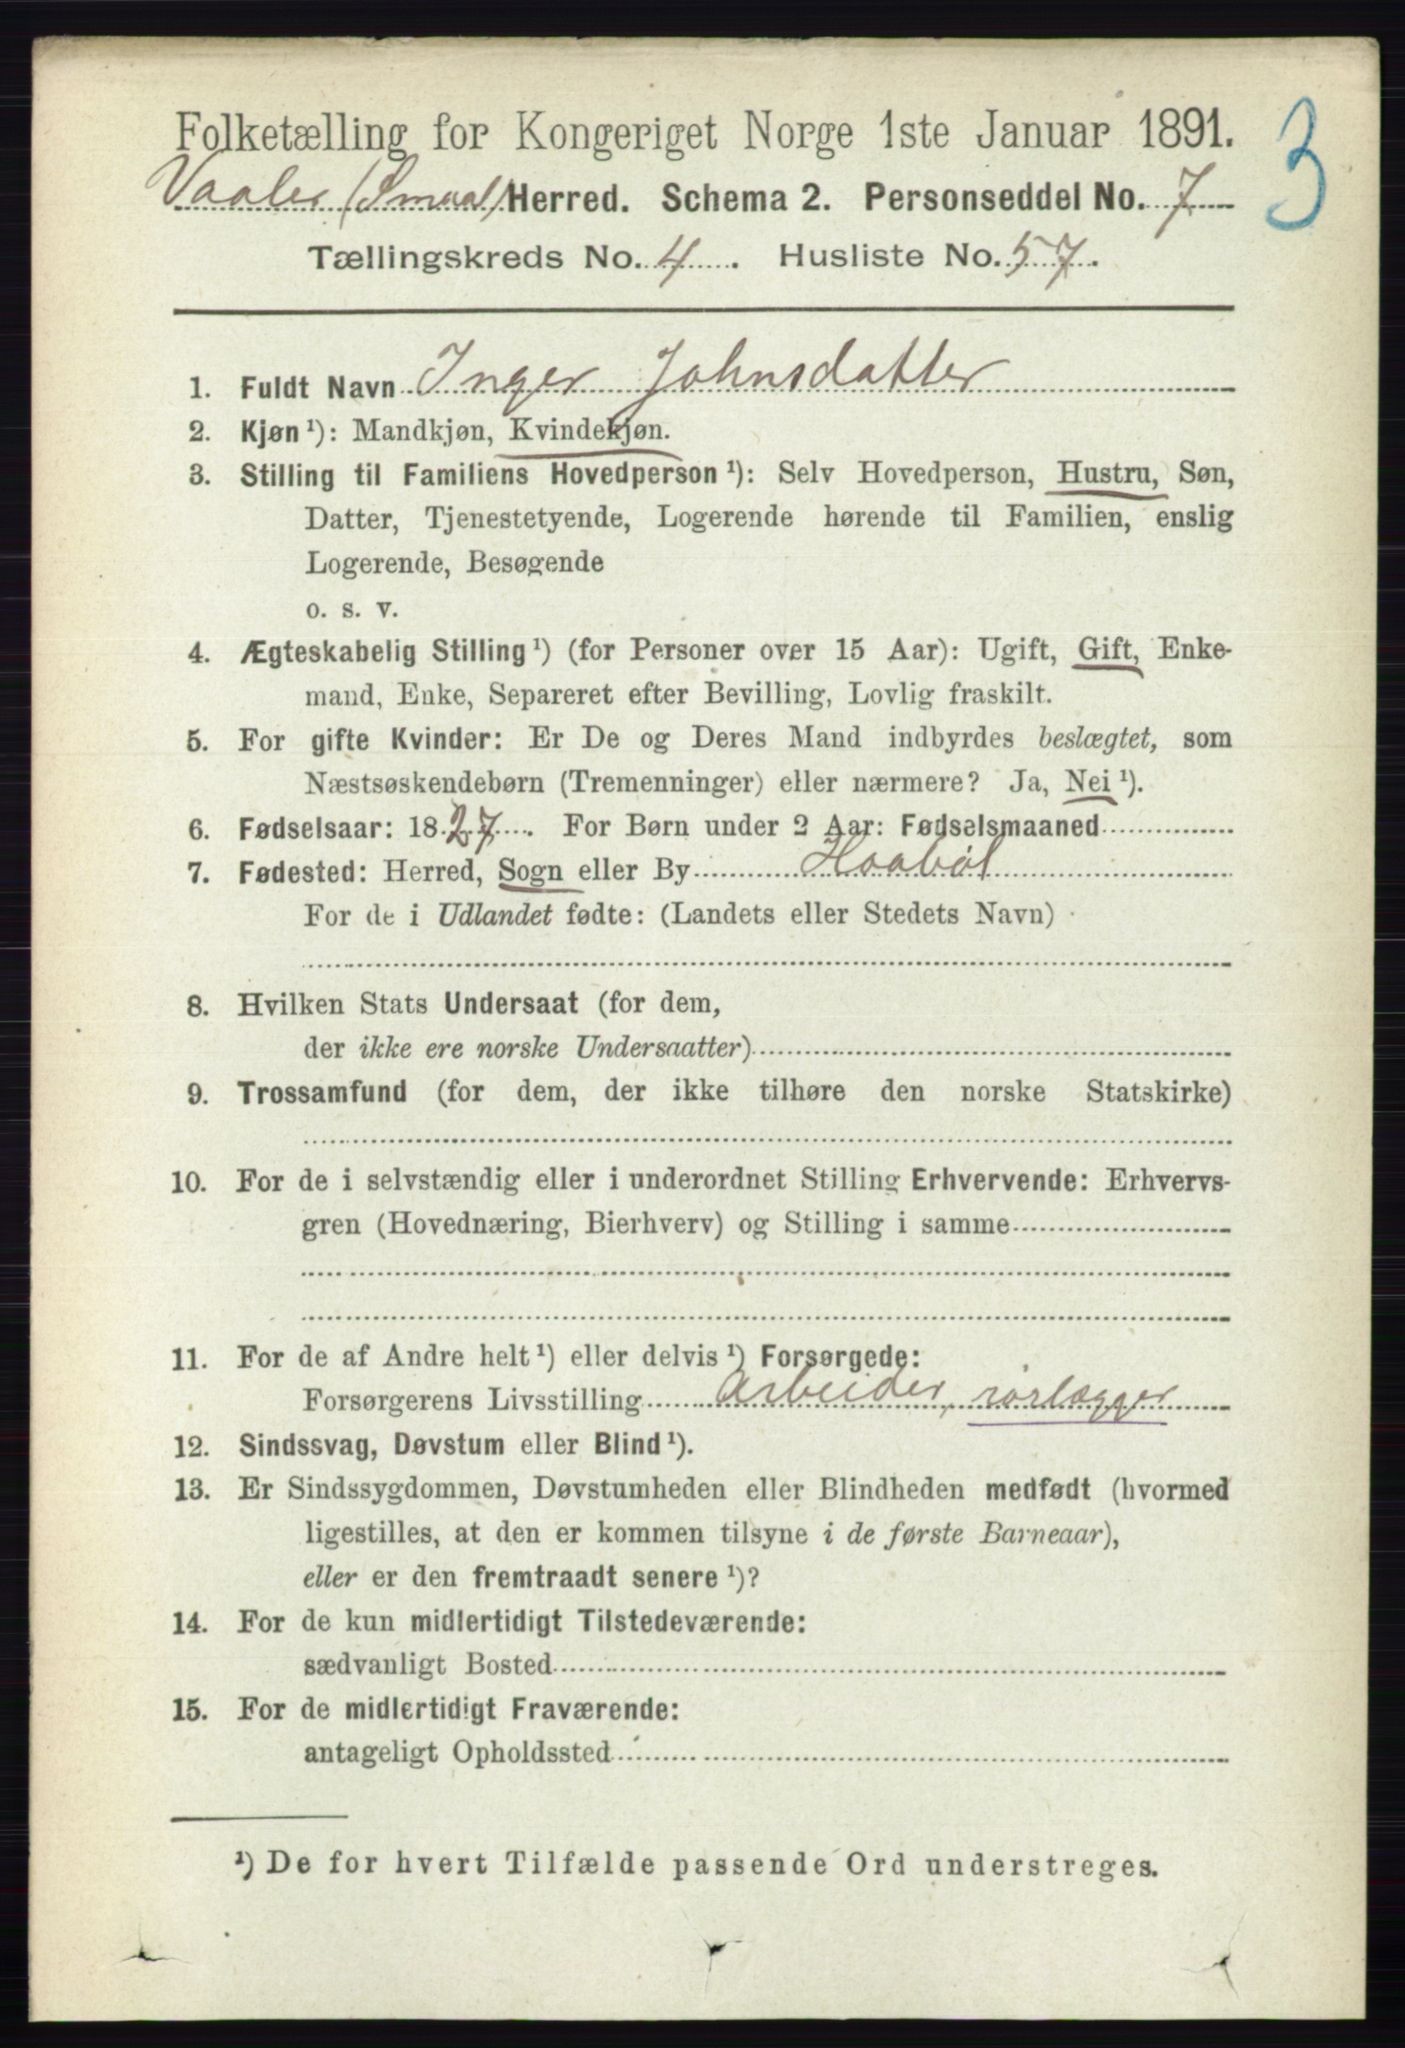 Folketælling for Kongeriget Norge 1ste Januar 1891.
3
Vaaler (Smaal) Herred. Schema 2. Personseddel No. 7
Tællingskreds No. 4. Husliste No. 57.
1. Fuldt Navn Inger Johnsdatter
2. Kjøn ¹): Mandkjøn, Kvindekjøn.
3. Stilling til Familiens Hovedperson ¹): Selv Hovedperson, Hustru, Søn,
Datter, Tjenestetyende, Logerende hørende til Familien, enslig
Logerende, Besøgende
o. s. v.
4. Ægteskabelig Stilling ¹) (for Personer over 15 Aar): Ugift, Gift, Enke-
mand, Enke, Separeret efter Bevilling, Lovlig fraskilt.
5. For gifte Kvinder: Er De og Deres Mand indbyrdes beslægtet, som
Næstsøskendebørn (Tremenninger) eller nærmere? Ja, Nei ¹).
6. Fødselsaar: 1827. For Børn under 2 Aar: Fødselsmaaned
7. Fødested: Herred, Sogn eller By Haabøl
For de i Udlandet fødte: (Landets eller Stedets Navn)
8. Hvilken Stats Undersaat (for dem,
der ikke ere norske Undersaatter)
9. Trossamfund (for dem, der ikke tilhøre den norske Statskirke)
10. For de i selvstændig eller i underordnet Stilling Erhvervende: Erhvervs-
gren (Hovednæring, Bierhverv) og Stilling i samme
11. For de af Andre helt ¹) eller delvis ¹) Forsørgede:
Forsørgerens Livsstilling Arbeider, rørlægger
12. Sindssvag, Døvstum eller Blind ¹).
13. Er Sindssygdommen, Døvstumheden eller Blindheden medfødt (hvormed
ligestilles, at den er kommen tilsyne i de første Barneaar),
eller er den fremtraadt senere ¹)?
14. For de kun midlertidigt Tilstedeværende:
sædvanligt Bosted
15. For de midlertidigt Fraværende:
antageligt Opholdssted
¹) De for hvert Tilfælde passende Ord understreges.